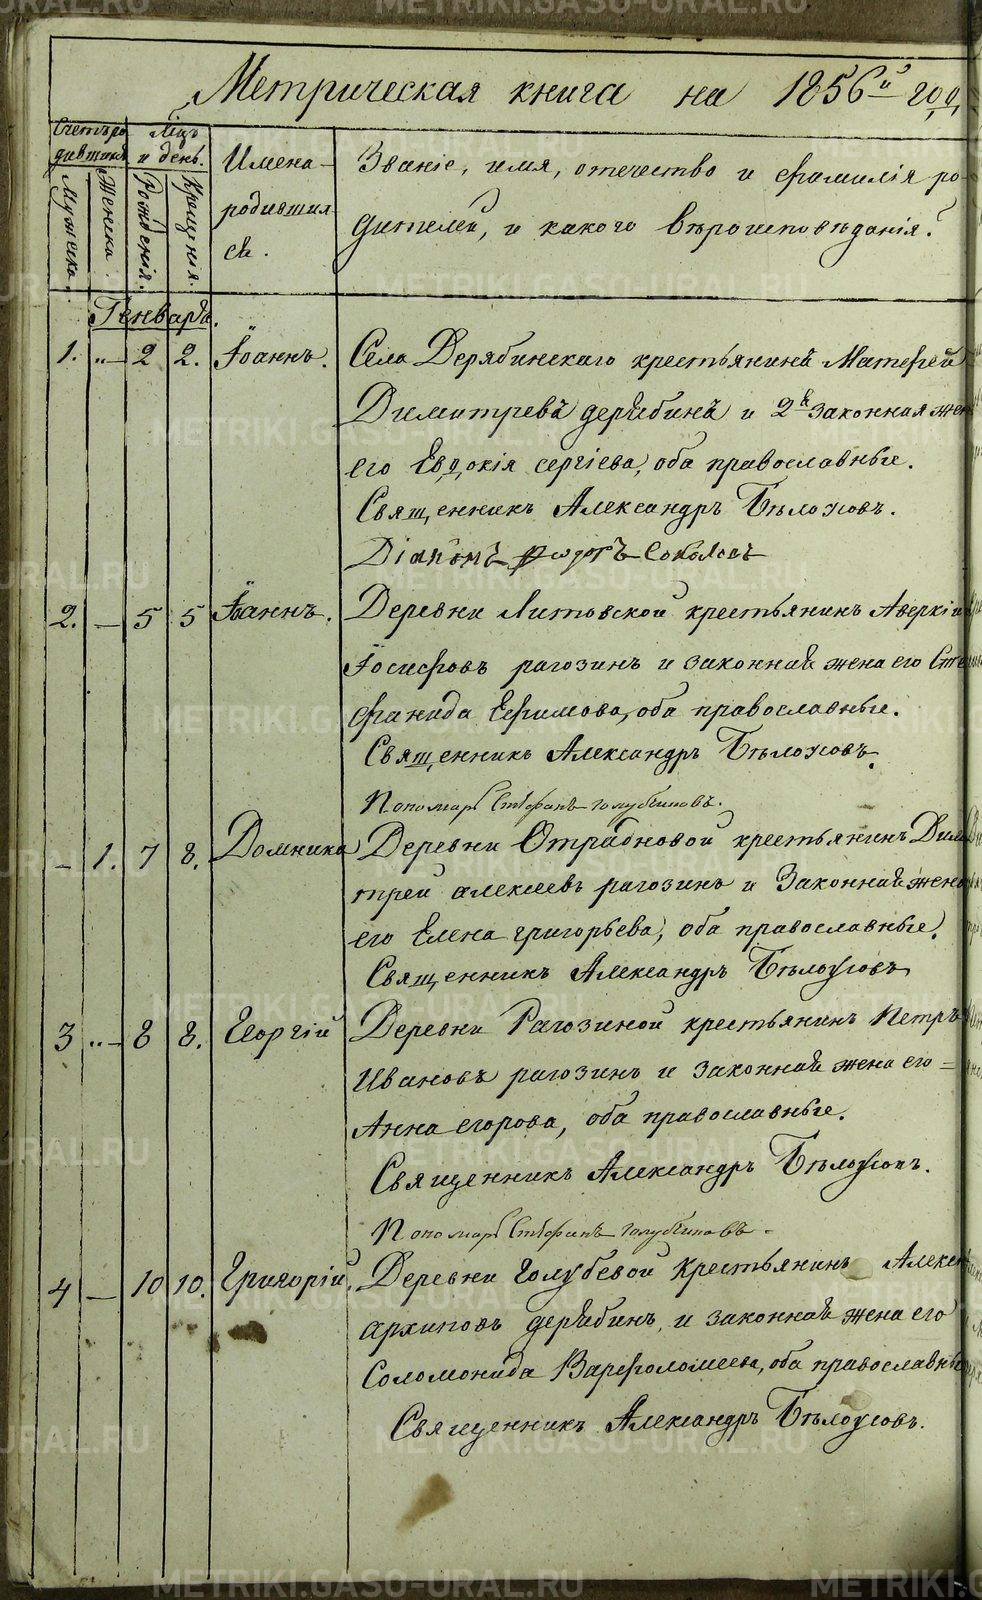 Метрическая книга на 1856й год
Счетъ ро
дившихся
Мужеска.
Женска.
Мцъ
и день.
Рожденія.
Крещенія.
Имена
родивших
ся.
Званіе, имя, отечество и фамилія ро-
дителей, и какого вѣроисповѣданія.
Генварь.
1. „ — 2 2. Іоаннъ. Села Дерябинскаго крестьянинъ Матфей
Димитревъ дерябинъ и 2я законная жена
его Евдокія сергіева, оба православные.
Священникъ Александръ Бѣлоусовъ.
Діаконъ Соколовъ
2. — 5 5 Іоаннъ. Деревни Литовской крестьянинъ Аверкій
Іосифовъ рагозинъ и законная жена его Сте
фанида Ефимова, оба православные.
Священникъ Александръ Бѣлоусовъ.
Пономарь Стефанъ голубчиковъ.
— 1. 7 8. Домника Деревни Отрадновой крестьянинъ Дими
трей алексеевъ рагозинъ и законная жена
его Елена григорьева, оба православные.
Священникъ Александръ Бѣлоусовъ
3 „ — 8 8. Георгій Деревни Рагозиной крестьянинъ Петръ
Ивановъ рагозинъ и законная жена его =
Анна егорова, оба православные.
Священникъ Александръ Бѣлоусовъ.
Пономарь Стефанъ голубчиковъ.
4 — 10 10. Григорій. Деревни Голубевой крестьянинъ Алексей
архиповъ дерябинъ, и законная жена его
Соломонида Варфоломеева, оба православные
Священникъ Александръ Бѣлоусовъ.
METRIKI.GASO-URAL.RU